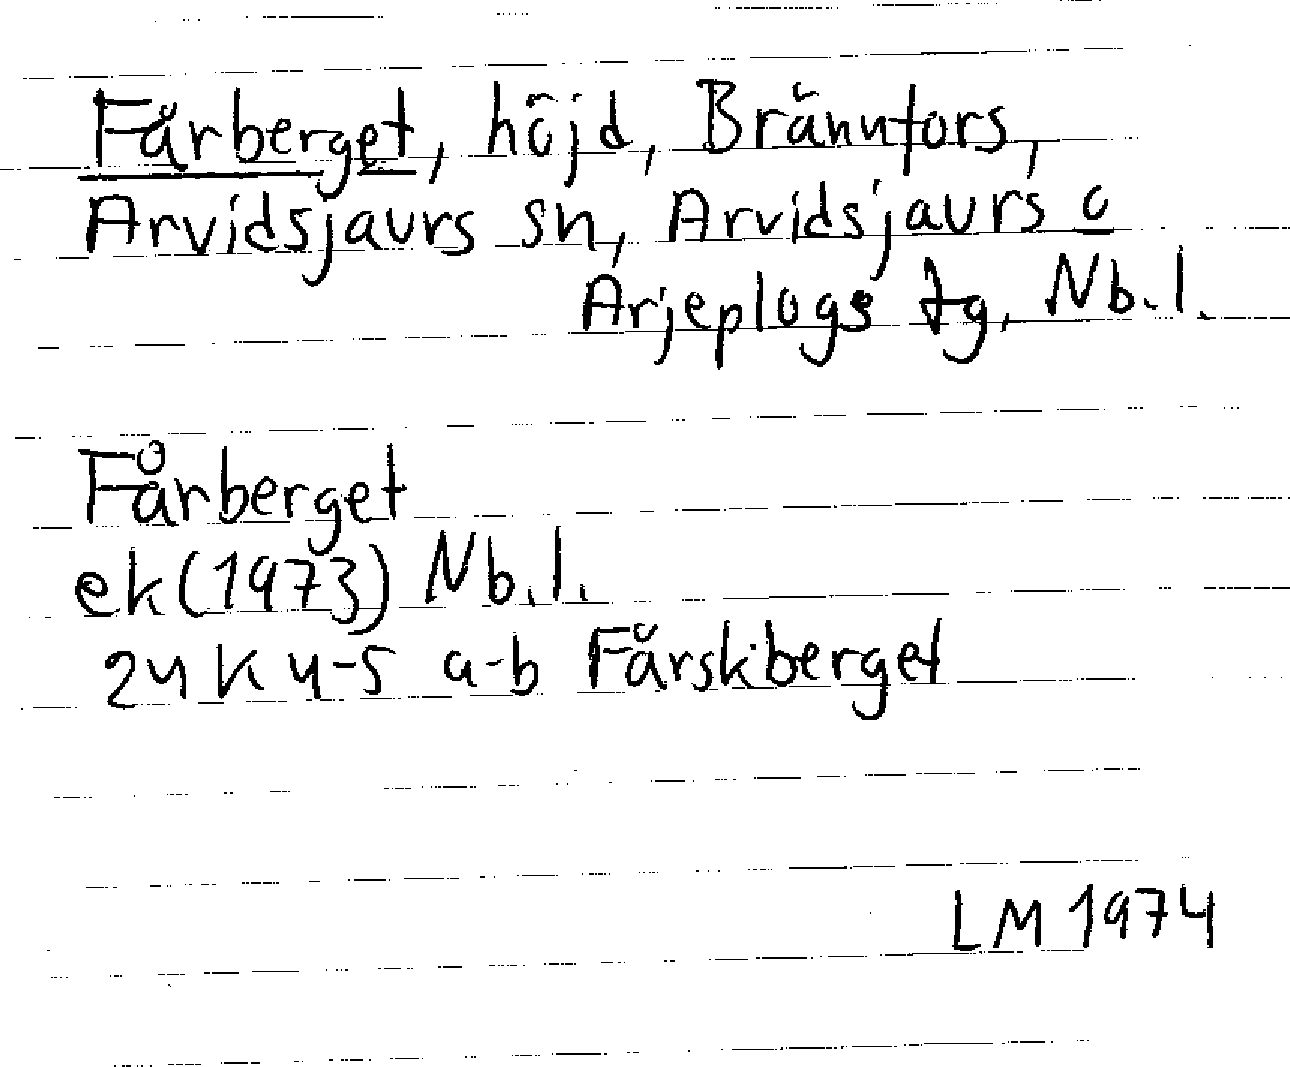 Fårberget, höjd, Brännfors,
Arvidsjaurs sn, Arvidsjaurs o
Arjeplogs tg, Nb. l.
Fårberget
ek (1973) Nb. l.
24 K 4-5 a-b Fårskberget
LM 1974